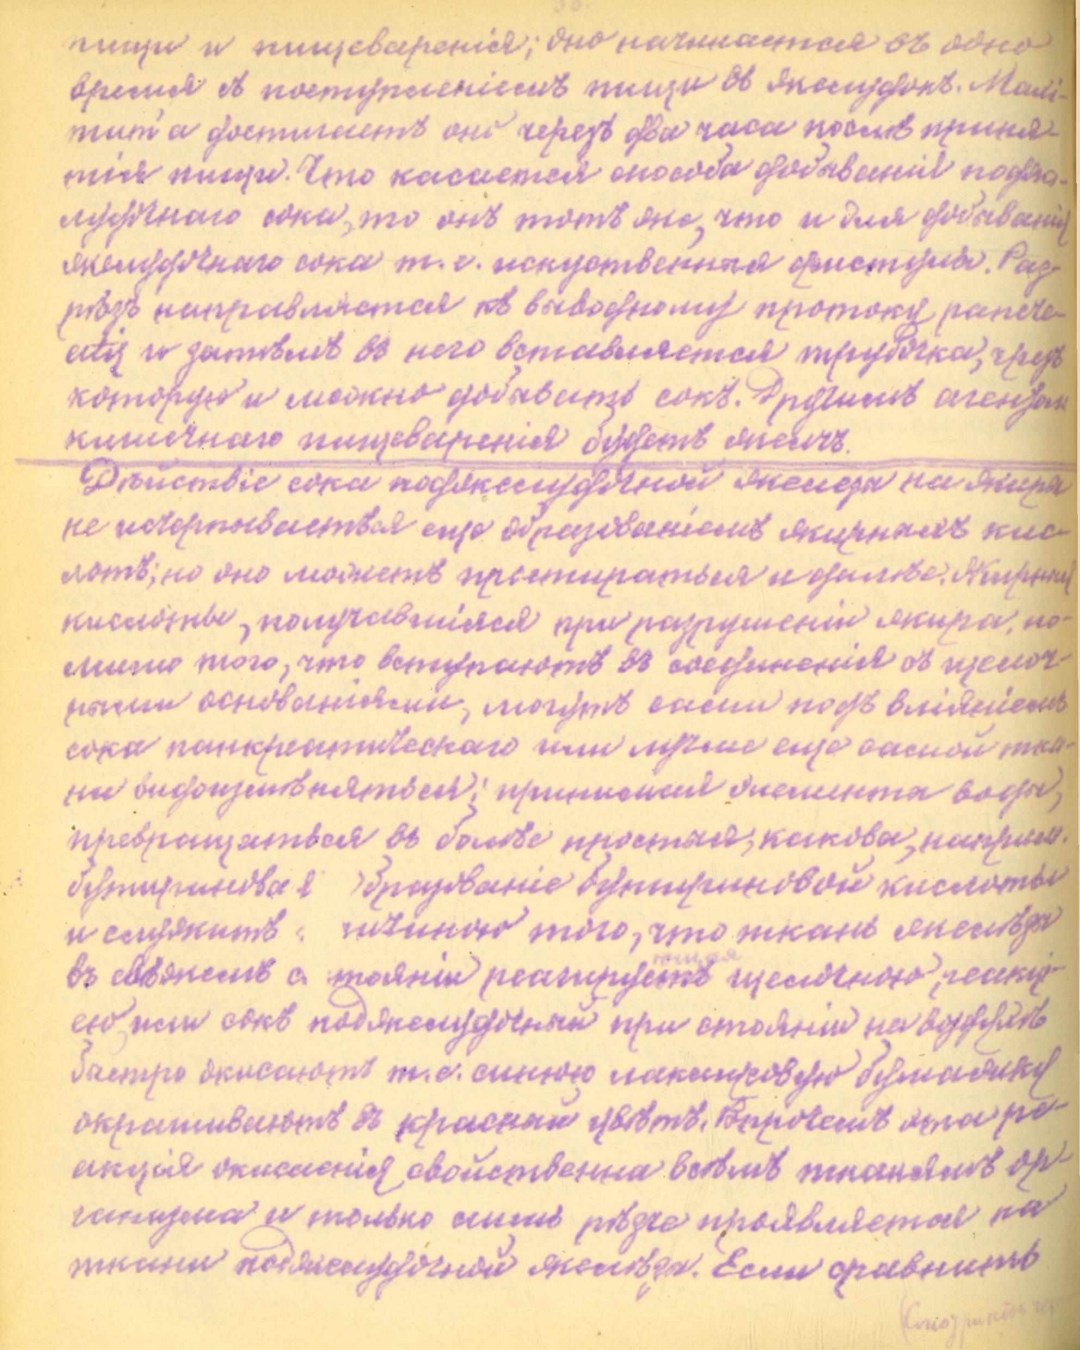 пищи и пищеваренія; оно начинается въ одно
время съ поступленіемъ пищи въ желудокъ. Махі-
mum'a достигаетъ оно черезъ два часа послѣ приня-
тія пищи. Что касается способа добыванія поджа-
лудочнаго сока, то онъ тотъ же, что и для добыванія
желудочнаго сока т. е. искуственная фистула. Раз-
рѣзъ направляется къ выводному протоку рапсге-
atis и затѣмъ въ него вставляется трубочка, чрезъ
которую и можно добывать сокъ. Другимъ агентом
кишечнаго пищеваренія будетъ желчь.
Дѣйствіе сока поджелудочной железы на жиры
не исчерпывается еще образованіемъ жирныхъ кис-
лотъ; но оно можетъ простираться и далѣе. Жирныя
кислоты, получавшіяся при разрушеніи жира, по-
мимо того, что вступаютъ въ соединенія съ щелоч-
ными основаніями, могутъ сами подъ вліяніемъ
сока панкреатическаго или лучше еще самой тка-
ни видоизмѣняться; принимая элементы воды,
превращаться въ болѣе простыя, какова, наприм.
бутириновая бразованіе бутириновой кислоты
и служитъ чиною того, что ткань желѣзы
въ свѣжемъ с тояніи реагируетъ щелочною реакці-
ею, или сокъ поджелудочный при стояніи на воздухѣ
быстро окисаютъ т. е. синюю лакмусовую бумажку
окрашиваютъ въ красный цвѣтъ. Впрочемъ эта ре-
акція окисленія свойственна всѣмъ тканямъ ор-
ганизма и только лишь рѣзче проявляется на
ткани поджелудочной желѣзы. Если сравнить